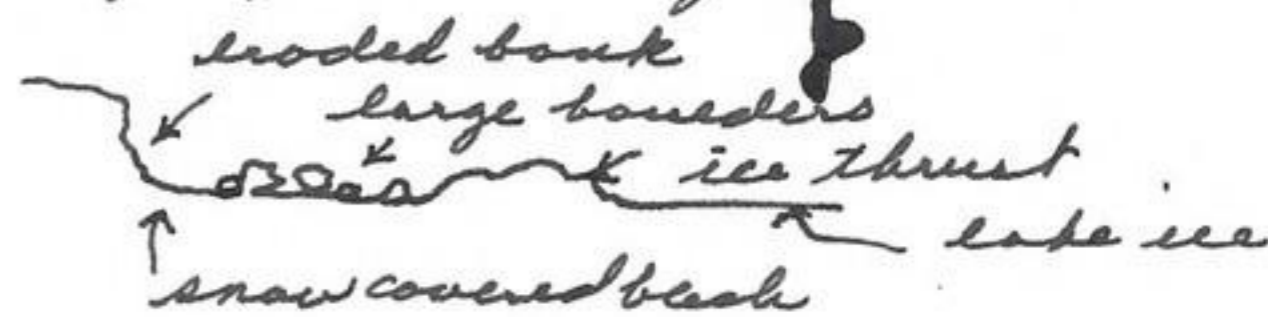 eroded bank
large boulders
ice thrust
lake ice
snow covered beach